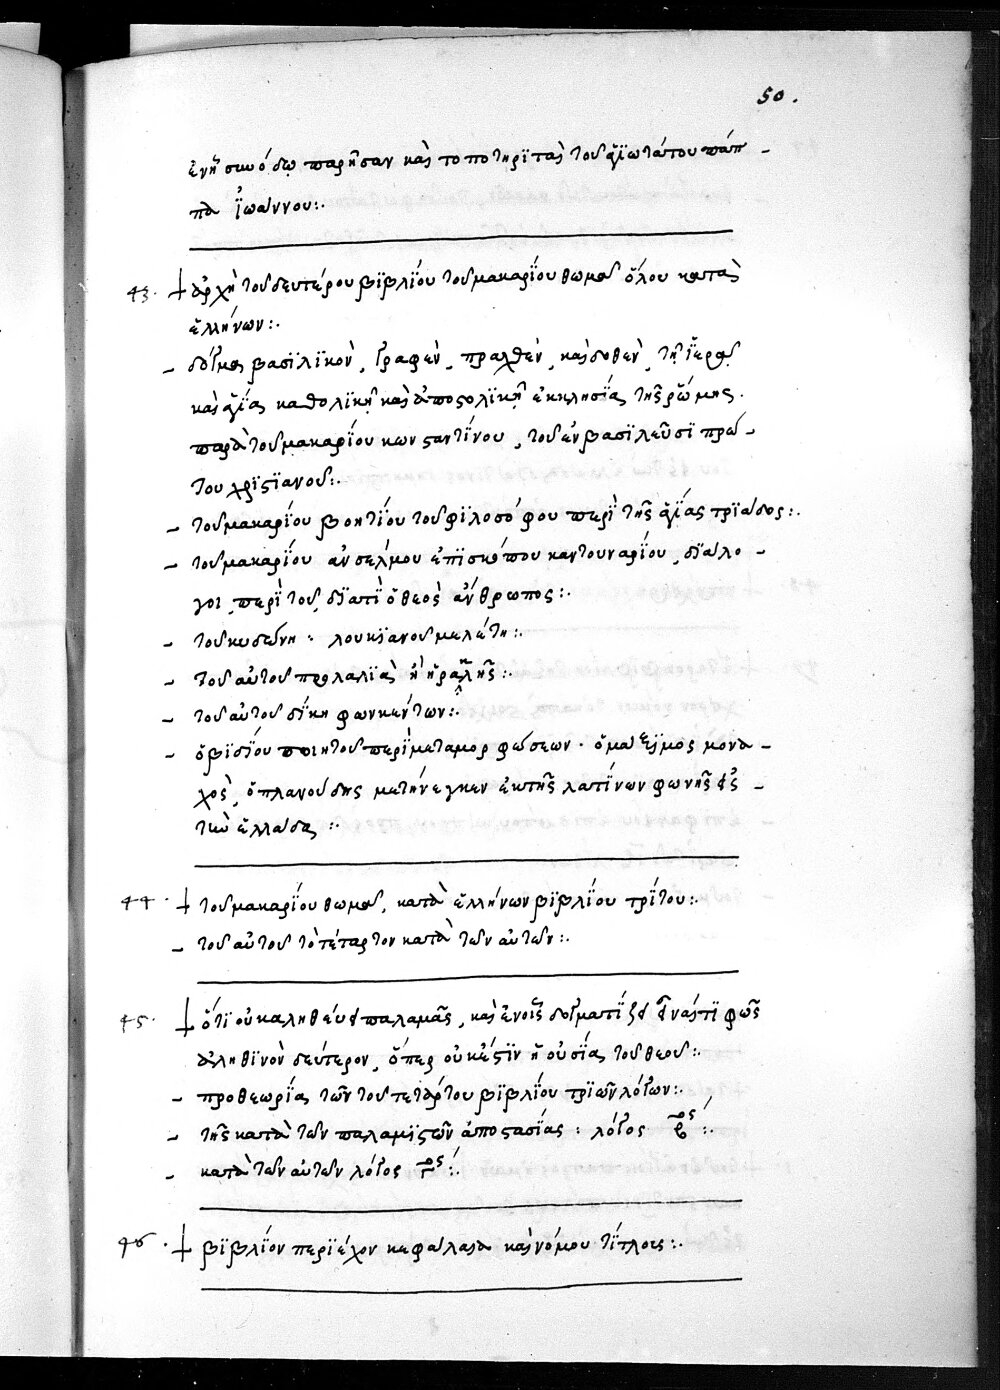 50.
ἐν ᾗ συνόδῳ παρῆσαν καὶ τοποτηρϊταὶ τοῦ ἁγϊωτάτου πάπ-
πα ἰωάννου:.
43. + ἀρχὴ τοῦ δευτέρου βϊβλΐου τοῦ μακαρΐου θωμᾶ ὅλου κατὰ
ἑλλήνων:.
- δόγμα βασϊλϊκὸν, γραφὲν, πραχθὲν, καὶ δοθὲν, τῇ ἱερᾷ
καὶ ἁγΐας καθολϊκῇ καὶ ἀποστολϊκῇ ἐκκλησΐας τῆς ῥώμης.
παρὰ τοῦ μακαρίου κωνσταντΐνου, τοῦ ἐν βασϊλεῦσϊ πρώ-
του χρϊστϊανοῦ:.
- τοῦ μακαρΐου βοητΐου τοῦ φϊλοσόφου περὶ τῆς ἁγΐας τρϊάδος:.
- τοῦ μακαρΐου ἀνσέλμου ἐπϊσκόπου καντουναρΐου, δϊάλο-
γοι, περὶ τοῦ, δϊατὶ ὁ θεὸς ἄνθρωπος:.
- τοῦ κυδώνη: λουκϊανοῦ μελέτη:.
- τοῦ αὐτοῦ προλαλϊὰ ἢ ἡρακλῆς:.
- τοῦ αὐτοῦ δίκη φωνηέντων:.
- ὀβϊδΐου ποιητοῦ περὶ μεταμορφώσεων. ὃ μάξϊμος μονα-
χὸς, ὁ πλανούδης μετήνεγκεν ἐκ τῆς λατΐνων φωνῆς εἰς
τὴν ἑλλάδα:.
44. + τοῦ μακαρίου θωμᾶ, κατὰ ἑλλήνων βϊβλΐου τρΐτου:.
- τοῦ αὐτοῦ τὸ τέταρτον κατὰ τῶν αὐτῶν:.
45. + ὅτϊ οὐκ ἀληθεύει παλαμᾶς, καὶ ἐν οἷς δογματΐζει εἶναί τϊ φῶς
ἀληθϊνὸν δεύτερον, ὅπερ οὐκ ἔστϊν ἡ οὐσία τοῦ θεοῦ:.
- προθεωρΐα τῶν τοῦ τετάρτου βϊβλΐου τρϊῶν λόγων:.
- τῆς κατὰ τῶν παλαμϊστῶν ἀποστασΐας: λόγος
- κατὰ τῶν αὐτῶν λόγος
46. + βϊβλΐον περϊέχον κεφάλαια καὶ νόμου τΐτλους:.